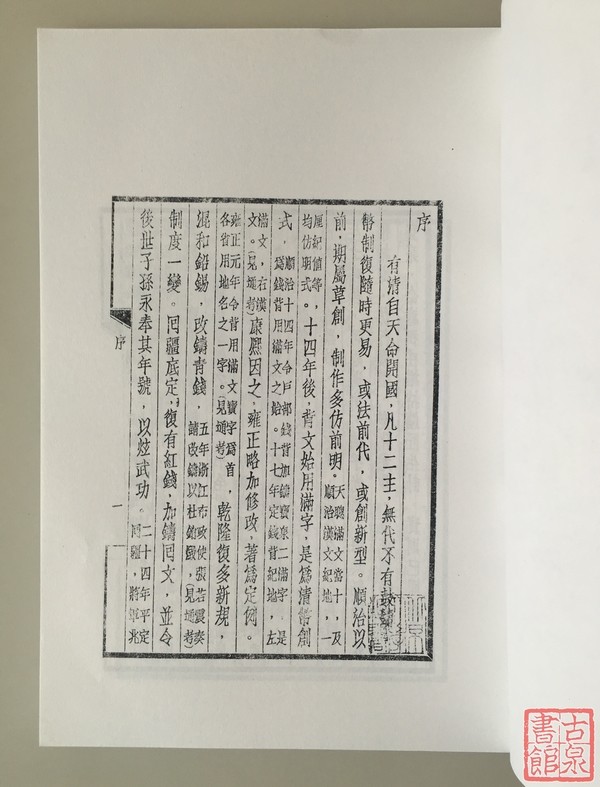 序
有清自天命開國，凡十二主，無代不有鼓鑄，
幣制復隨時更易，或法前代，或創新型。順治以
前，期屬草創，制作多仿前明。天聰滿文當十，及順治漢文紀地，一
厘紀值等，均仿明式。十四年後，背文始用滿字，是爲清幣創
式，順治十四年令戶部錢背加鑄寶泉二滿字，是爲錢背用滿文之始。十七年定錢背紀地，左
滿文，右漢文。（見通考）康熙因之，雍正略加修改，著爲定例。
雍正元年令背用滿文寶字爲首，各省用地名之一字。（見通考）乾隆復多新規，
混和鉛錫，改鑄青錢，五年浙江布政使張若震奏請改鑄以杜銷燬，（見通考）
制度一變。回疆底定，復有紅錢，加鑄回文，並令
後世子孫永奉其年號，以炫武功。二十四年平定回疆，將軍兆
序
一
古泉
書館